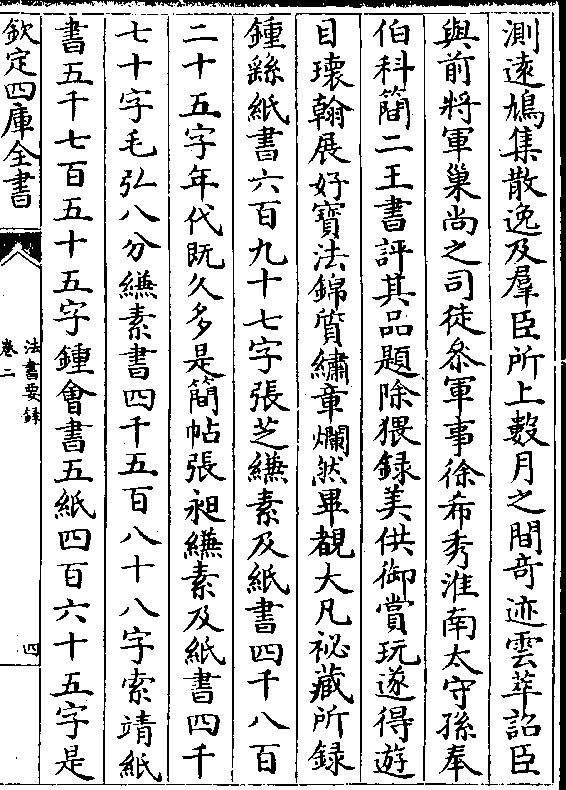 測遠鳩集散逸及羣臣所上數月之間竒迹雲萃詔臣
與前將軍巢尚之司徒叅軍事徐希秀淮南太守孫奉
伯科簡二王書評其品題除猥録美供御賞玩遂得遊
目瓌翰展好寶法錦質繡章爛然畢覩大凡祕藏所録
鍾繇紙書六百九十七字張芝縑素及紙書四千八百
二十五字年代既久多是簡帖張昶縑素及紙書四千
七十字毛弘八分縑素書四千五百八十八字索靖紙
書五千七百五十五字鍾會書五紙四百六十五字是
欽定四庫全書
法書要録
卷二
四